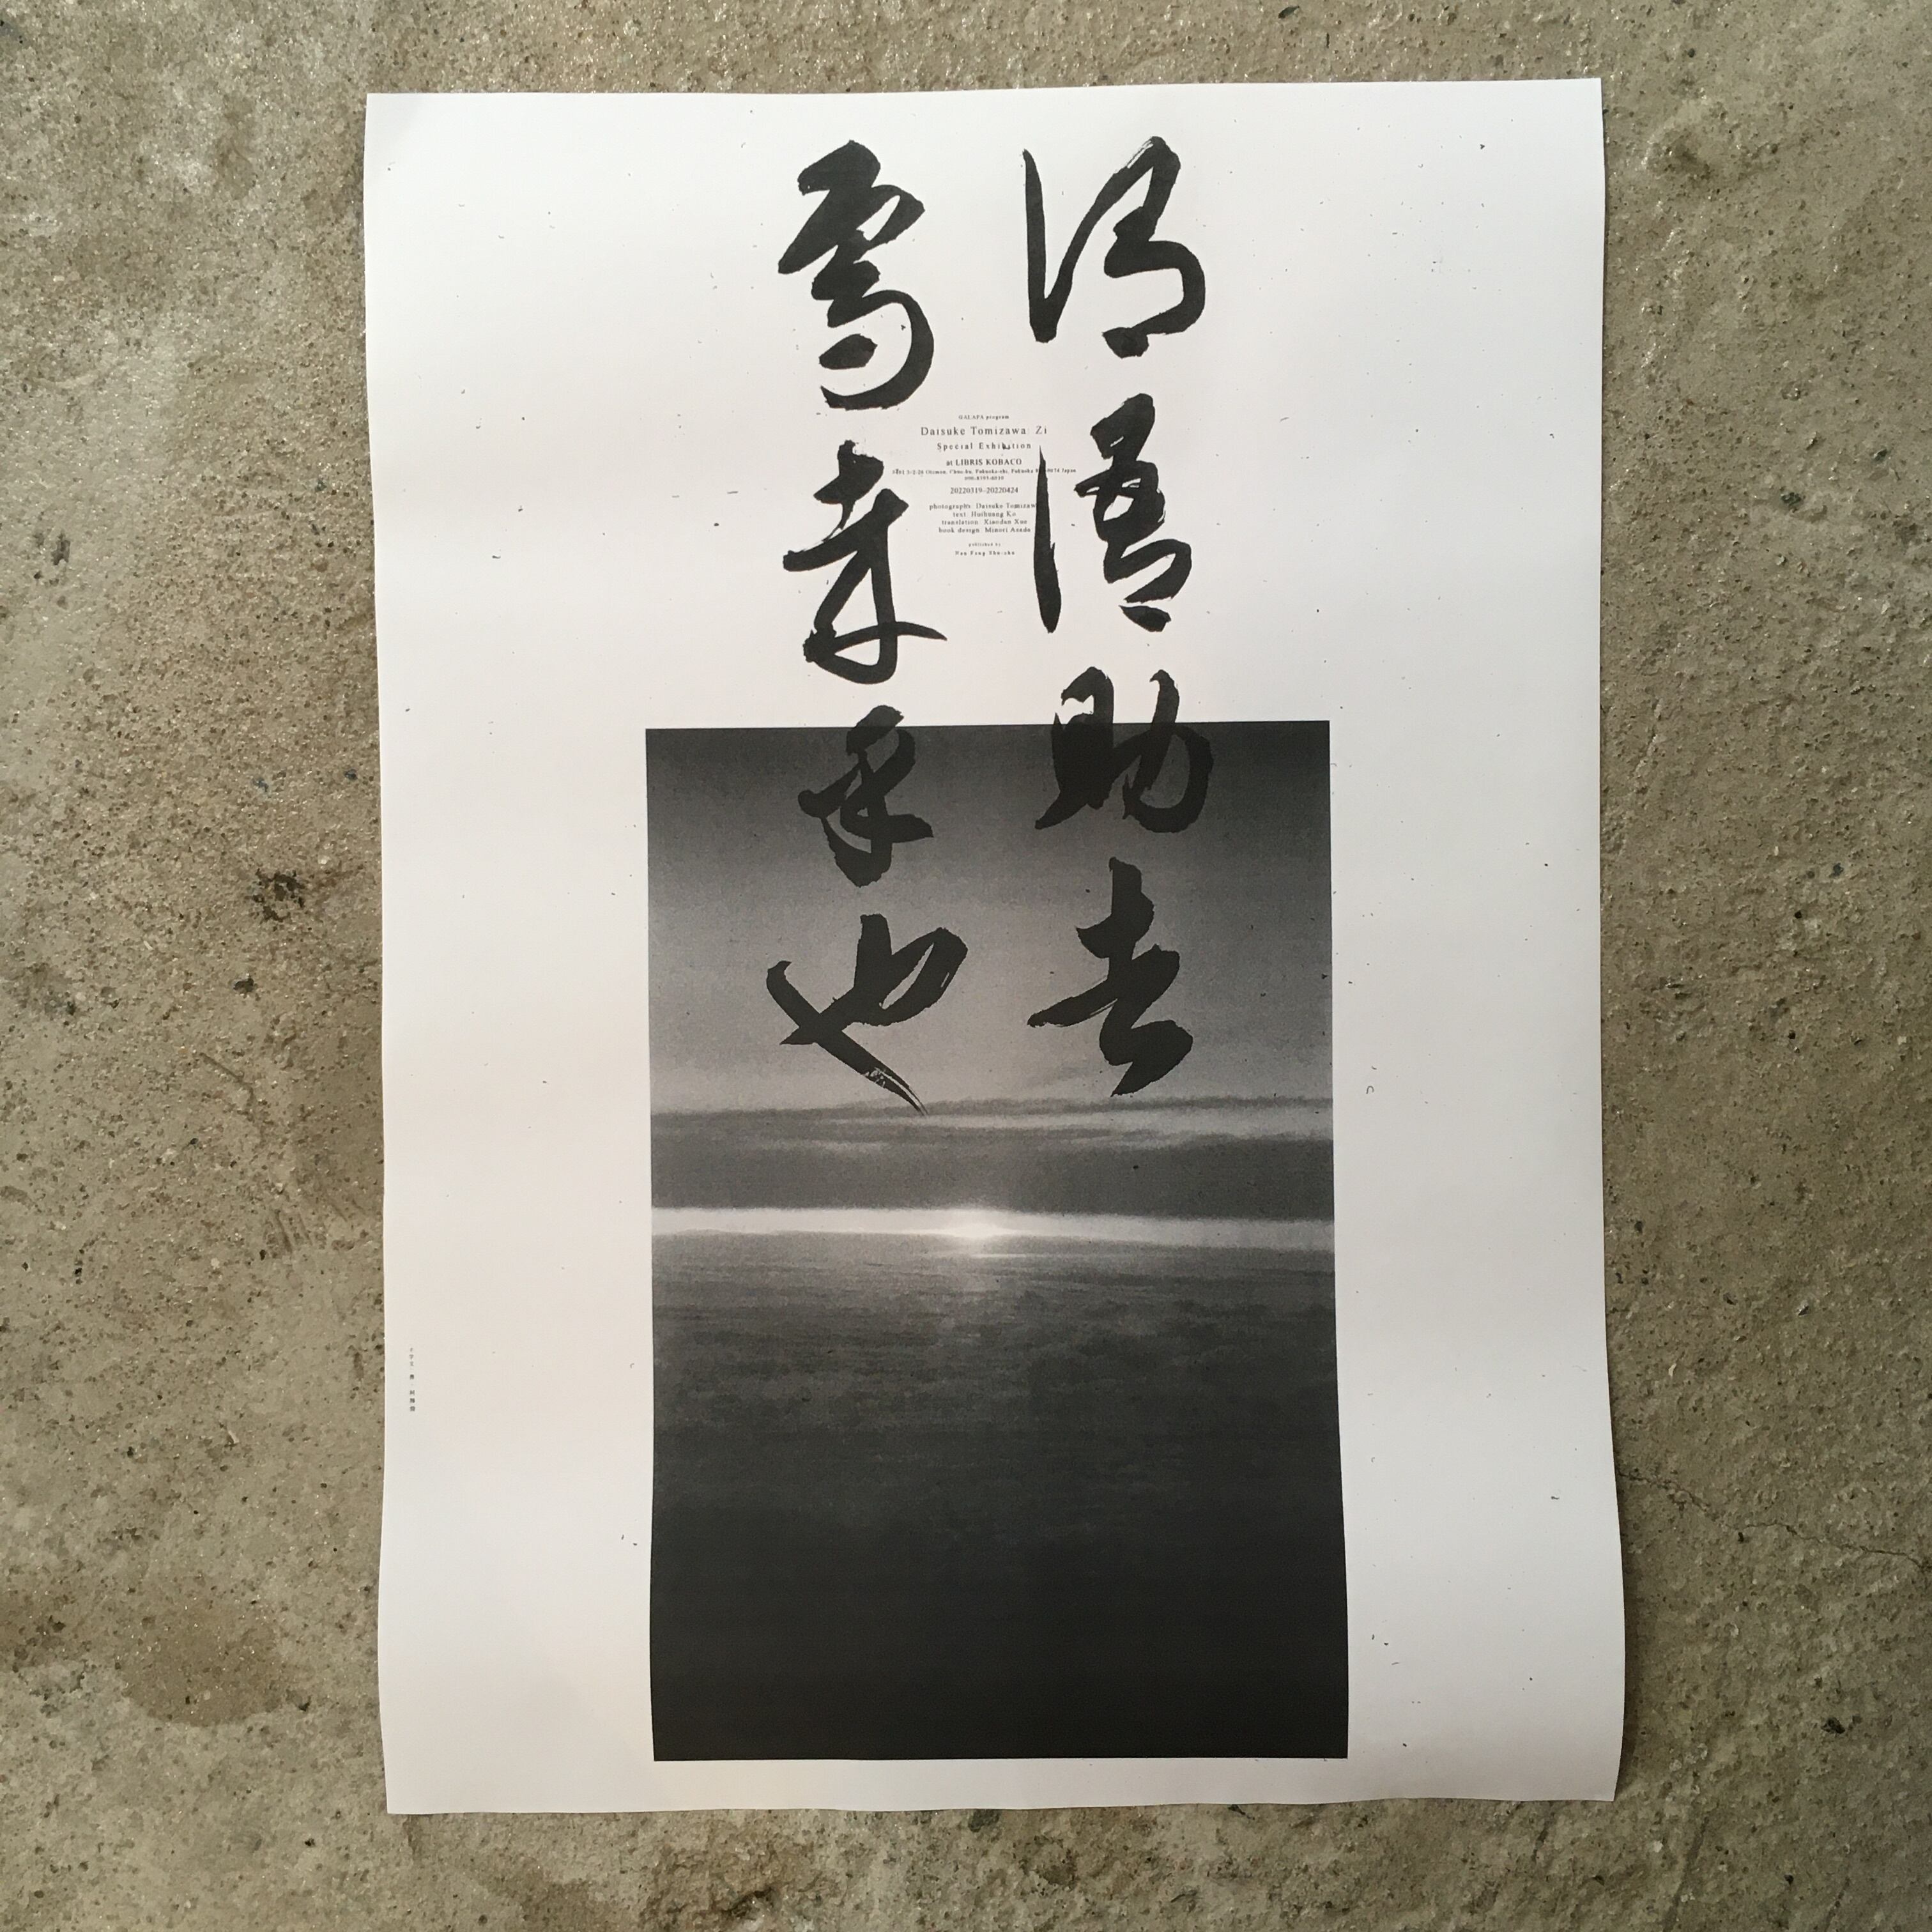 謂語助者
焉哉乎也
program
Daisuke Tomizawa: Zi
Special Exhibition
at LIBRIS KOBACO
Chuo-ku, Fukuoka-shi, Fukuoka Japan
20220319–20220424
photographs: Daisuke Tomizaw
text: Huihuang Ko
translation: Xiaodan
book design: Minori Asada
published by